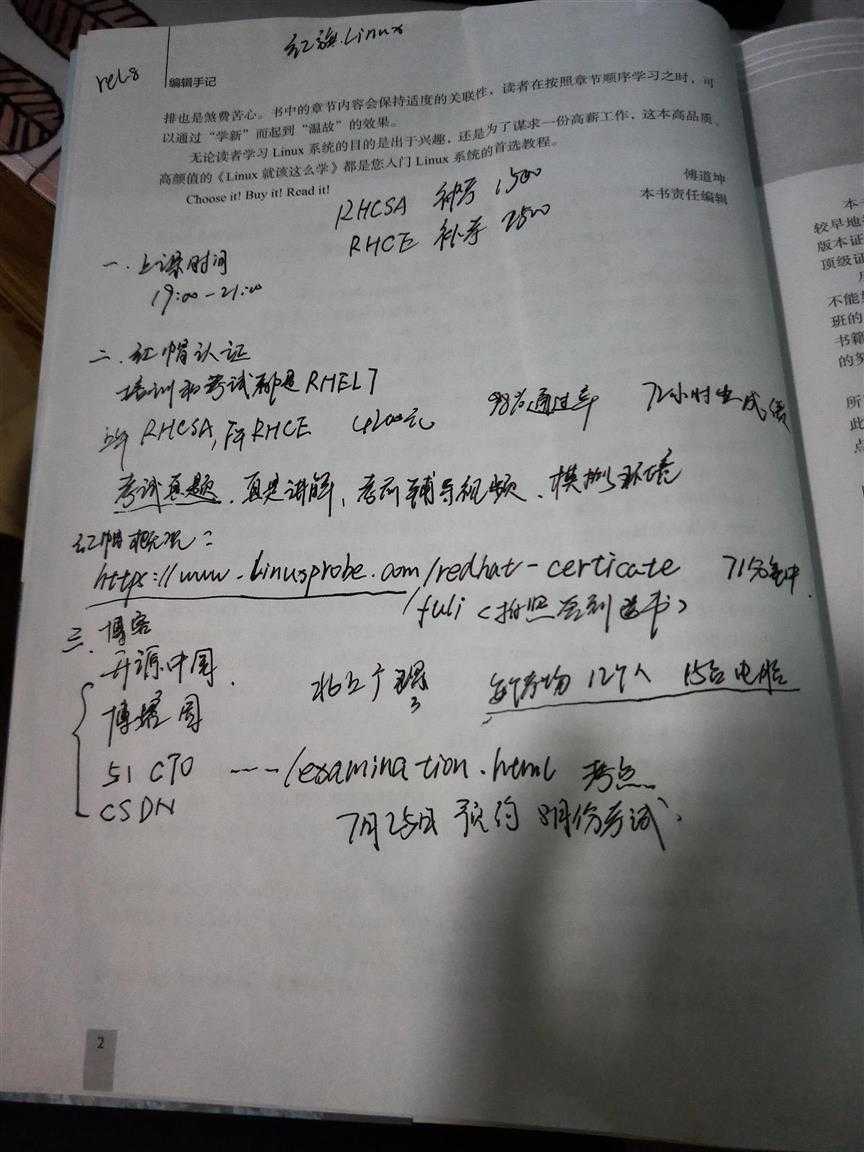 红旗.Linux
rel8
编辑手记
排也是煞费苦心。书中的章节内容会保持适度的关联性，读者在按照章节顺序学习之时，可
以通过“学新”而起到“温故”的效果。
无论读者学习 Linux 系统的目的是出于兴趣，还是为了谋求一份高薪工作，这本高品质、
高颜值的《Linux 就该这么学》都是您入门 Linux 系统的首选教程。
Choose it! Buy it! Read it!
傅道坤
本书责任编辑
RHCSA 补考 1500
RHCE 补考 2500
一、上课时间
19:00-21:00
二、红帽认证
培训和考试都是RHEL7
上午 RHCSA, 下午RHCE 4200元 98%通过率 72小时出成绩
考试真题、真是讲解、考前辅导视频、模拟环境
红帽概况：
https://www.linuxprobe.com/redhat-certicate 71%集中
/fuli（拍照签到送书）
三、博客
开源中国
博客园
51 CTO
CSDN
北上广
每个考场 12个人 15台电脑
----/examination.html 考点
7月25日 预约 8月份考试.
2
本书
较早地
版本证
顶级证
不能
班的
书籍
的努
所
此
点